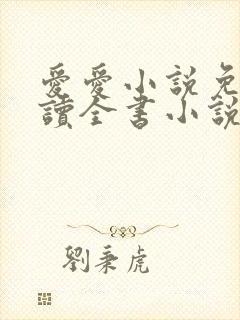 愛愛小說免
讀全書小說
劉秉虎